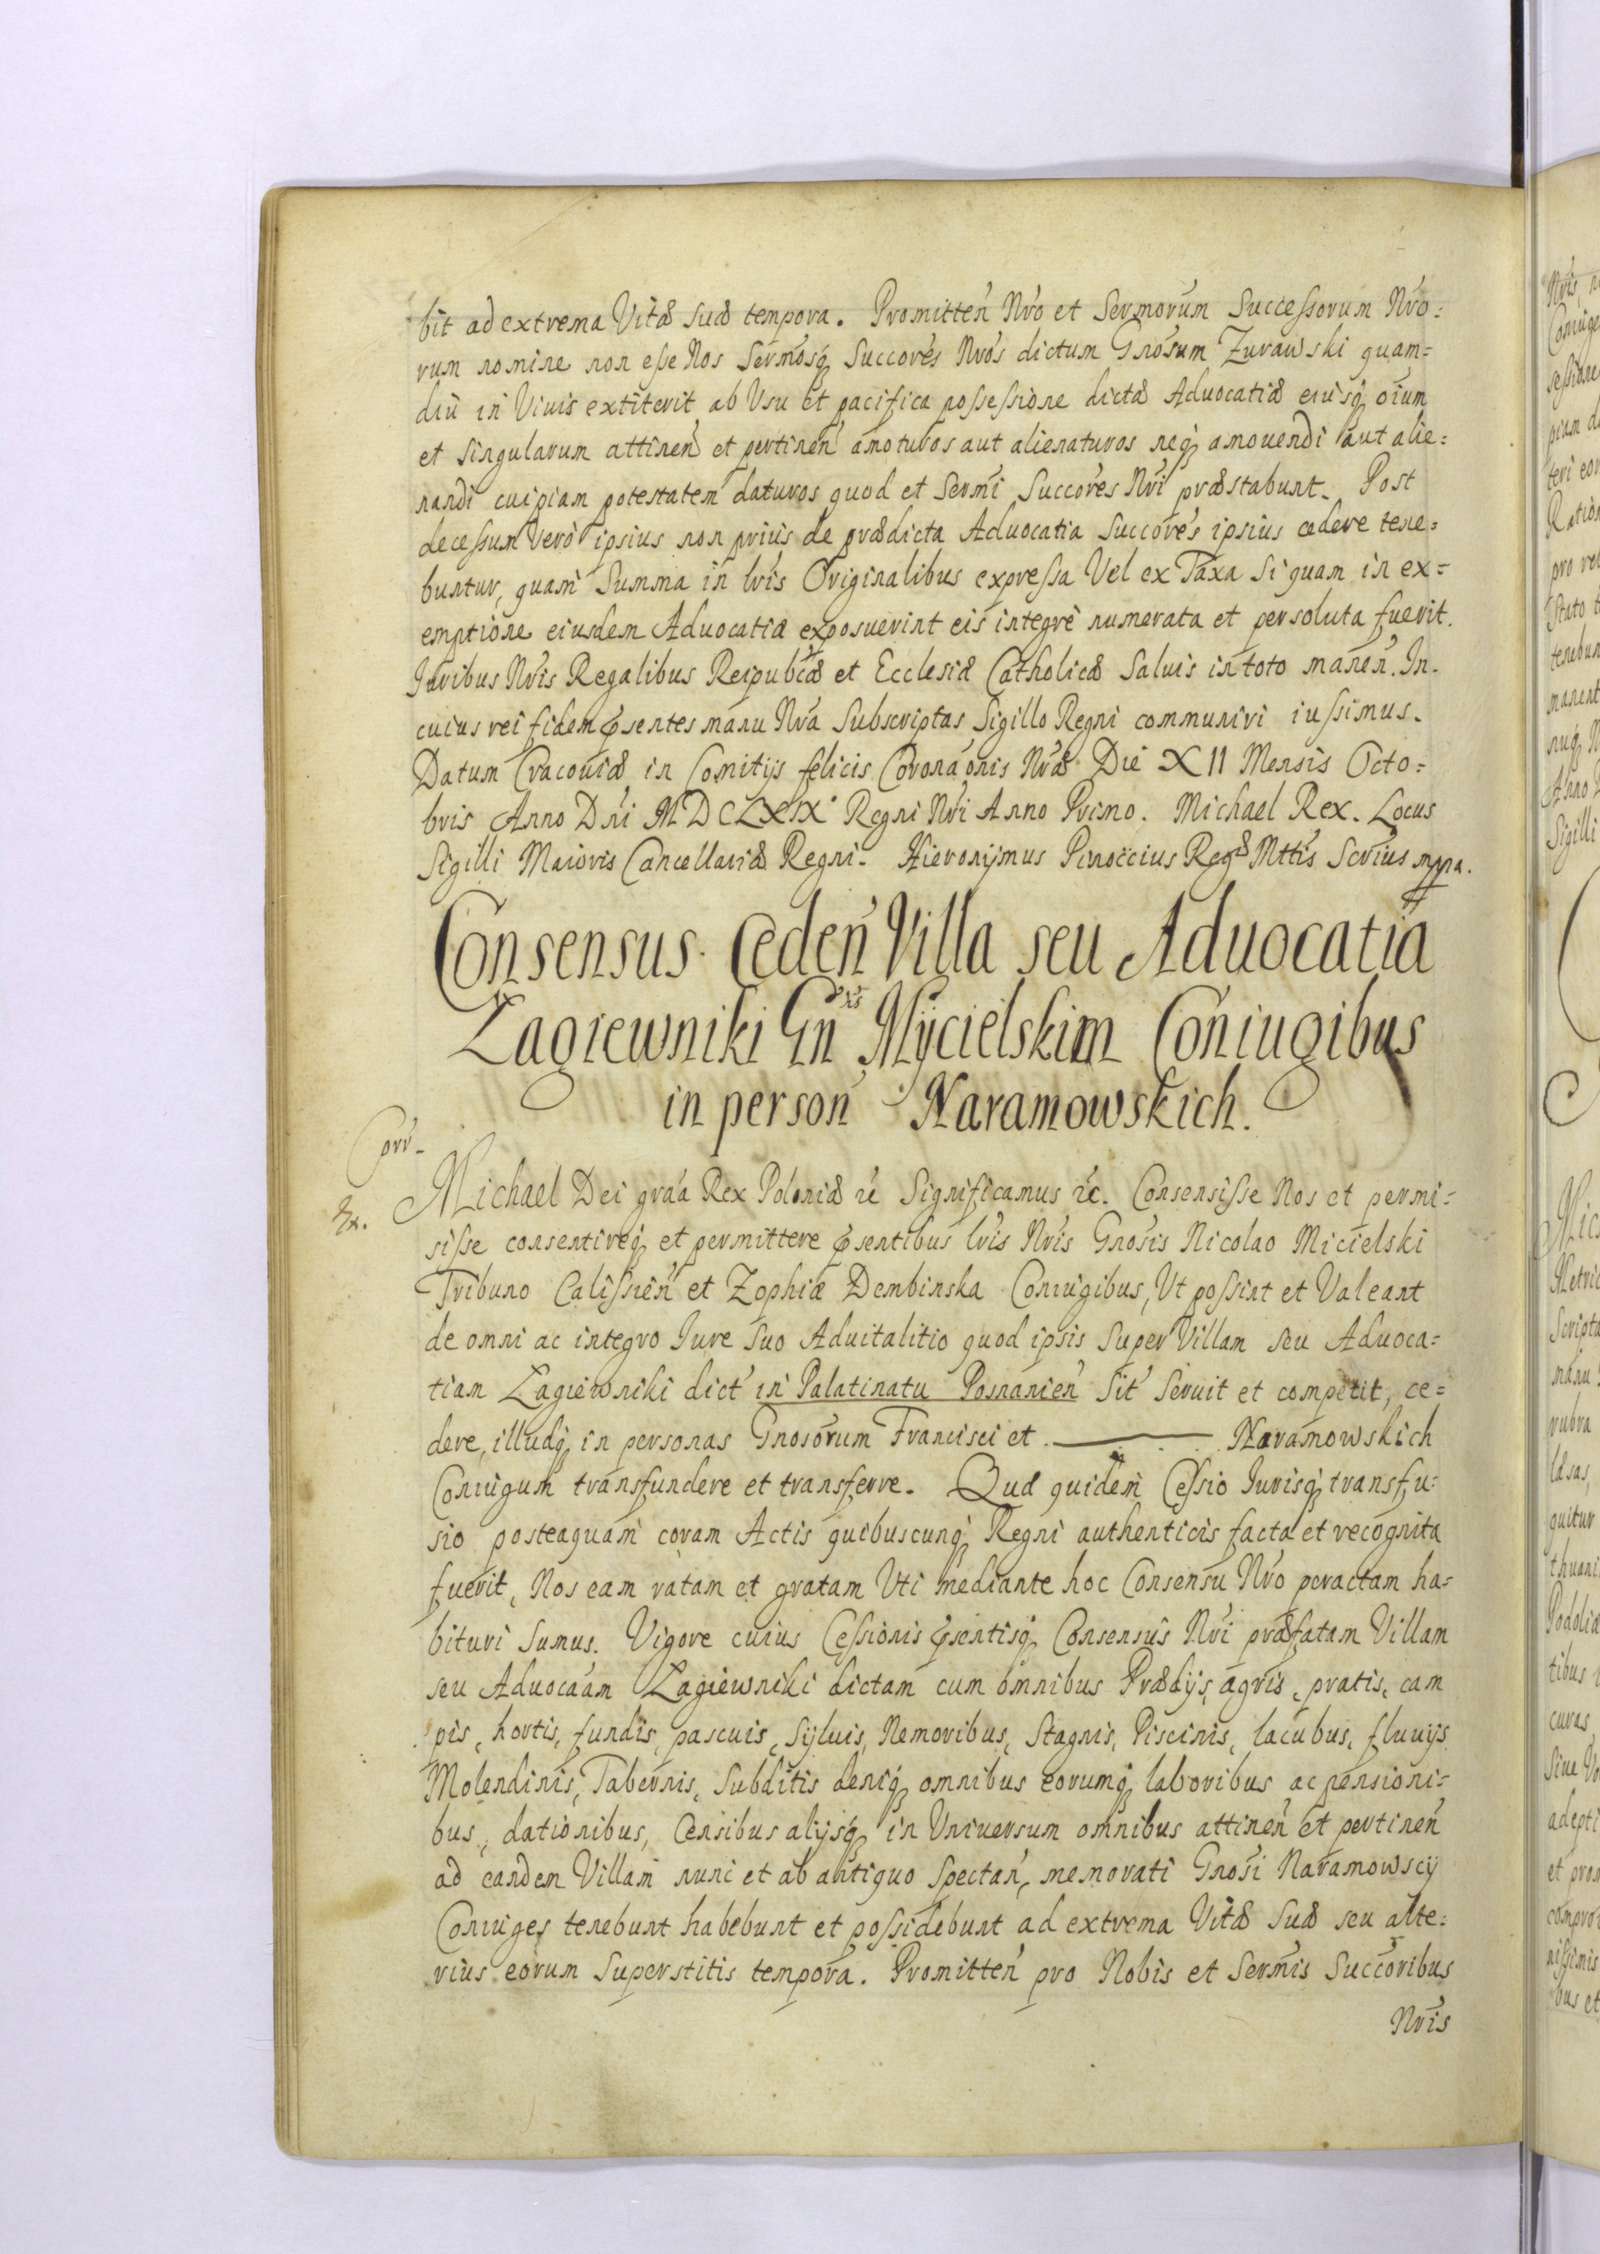 bit ad extrema Vitæ Suæ tempora. Promitten̄ Nr̄o et Serm̄orum Successorum Nr̄o=
rum nomine non esse Nos Serm̄osq̨ Succōres Nr̄os dictum Gn̄osum Zurawski quam=
diu in Viuis extiterit ab Vsu et pacifica possessione dictæ Aduocatiæ eiusq̨ oīum
et singularum attinen̄ et pertinen̄ amoturos aut alienaturos neq̨ amouendi aut alie=
nandi cuipiam potestatem daturos quod et Serm̄i Succōres Nr̄i præstabunt. Post
decessum vero ipsius non prius de prædicta Aduocatia Succōres ipsius cedere tene=
buntur, quam Summa in lr̄is Originalibus expressa Vel ex Taxa Si quam in ex=
emptione eiusdem Aduocatiæ exposuerint eis integrè numerata et persoluta fuerit.
Iuribus Nr̄is Regalibus Reipub̄cæ et Ecclesiæ Catholicæ Saluis in toto manen̄. In.
cuius rei fidem p̄sentes manu Nr̄a Subscriptas Sigillo Regni communiri iussimus.
Datum Cracouiæ in Comitijs felicis Corona͞onis Nr̄æ Die XII Mensis Octo=
bris Anno Dn̄i MDCLXIX Regni Nr̄i Anno Primo. Michael Rex. Locus
Sigilli Maioris Cancellariæ Regni. Hieronijmus Pinoccius Regæ Mttis Scr̄ius mp̄pa.
Consensus Ceden̄ Villa seu Aduocatia
Łagiewniki Gn̄ris Mÿcielskim Coniugibus
in person̄ Naramowskich.
Corr.
Ex.
Michael Dei gr̄āa Rex Poloniæ &c Significamus &c. Consensisse Nos et permi=
sisse consentireq̨ et permittere p̄sentibus lr̄is Nr̄is Gn̄osis Nicolao Micielski
Tribuno Calissien̄ et Zophiæ Dembinska Coniugibus, Vt possint et Valeant
de omni ac integro Iure Suo Aduitalitio quod ipsis Super Villam seu Aduoca=
tiam Łagiewniki dict̄ in Palatinatu Posnanien̄ Sit̄ Seruit et competit, ce=
dere, illudq̨ in personas Gn̄osorum Francisci et ——— Naramowskich
Coniugum transfundere et transferre. Quæ quidem Cessio Iurisq̨ transfu=
sio posteaquam coram Actis quibuscunq̨ Regni authenticis facta et recognita
fuerit, Nos eam ratam et gratam Vti mediante hoc Consensu Nr̄o peractam ha=
bituri Sumus. Vigore cuius Cessionis p̄sentisq̨ Consensus Nr̄i præfatam Villam
seu Aduocāam Łagiewniki dictam cum omnibus Prædijs, agris, pratis, cam
pis, hortis, fundis, pascuis, Syluis, Nemoribus, Stagnis, Piscinis, lacubus, fluuijs
Molendinis, Tabernis, Subditis deniq̨ omnibus eorumq̨ laboribus ac pensioni=
bus, dationibus, Censibus alijsq̨ in Vniuersum omnibus attinen̄ et pertinen̄
ad eandem Villam nunc et ab antiquo Spectan̄, memorati Gn̄osi Naramowscij
Coniuges tenebunt habebunt et possidebunt ad extrema Vitæ Suæ seu alte=
rius eorum Superstitis tempora. Promitten̄ pro Nobis et Serm̄is Succōribus
Nr̄is